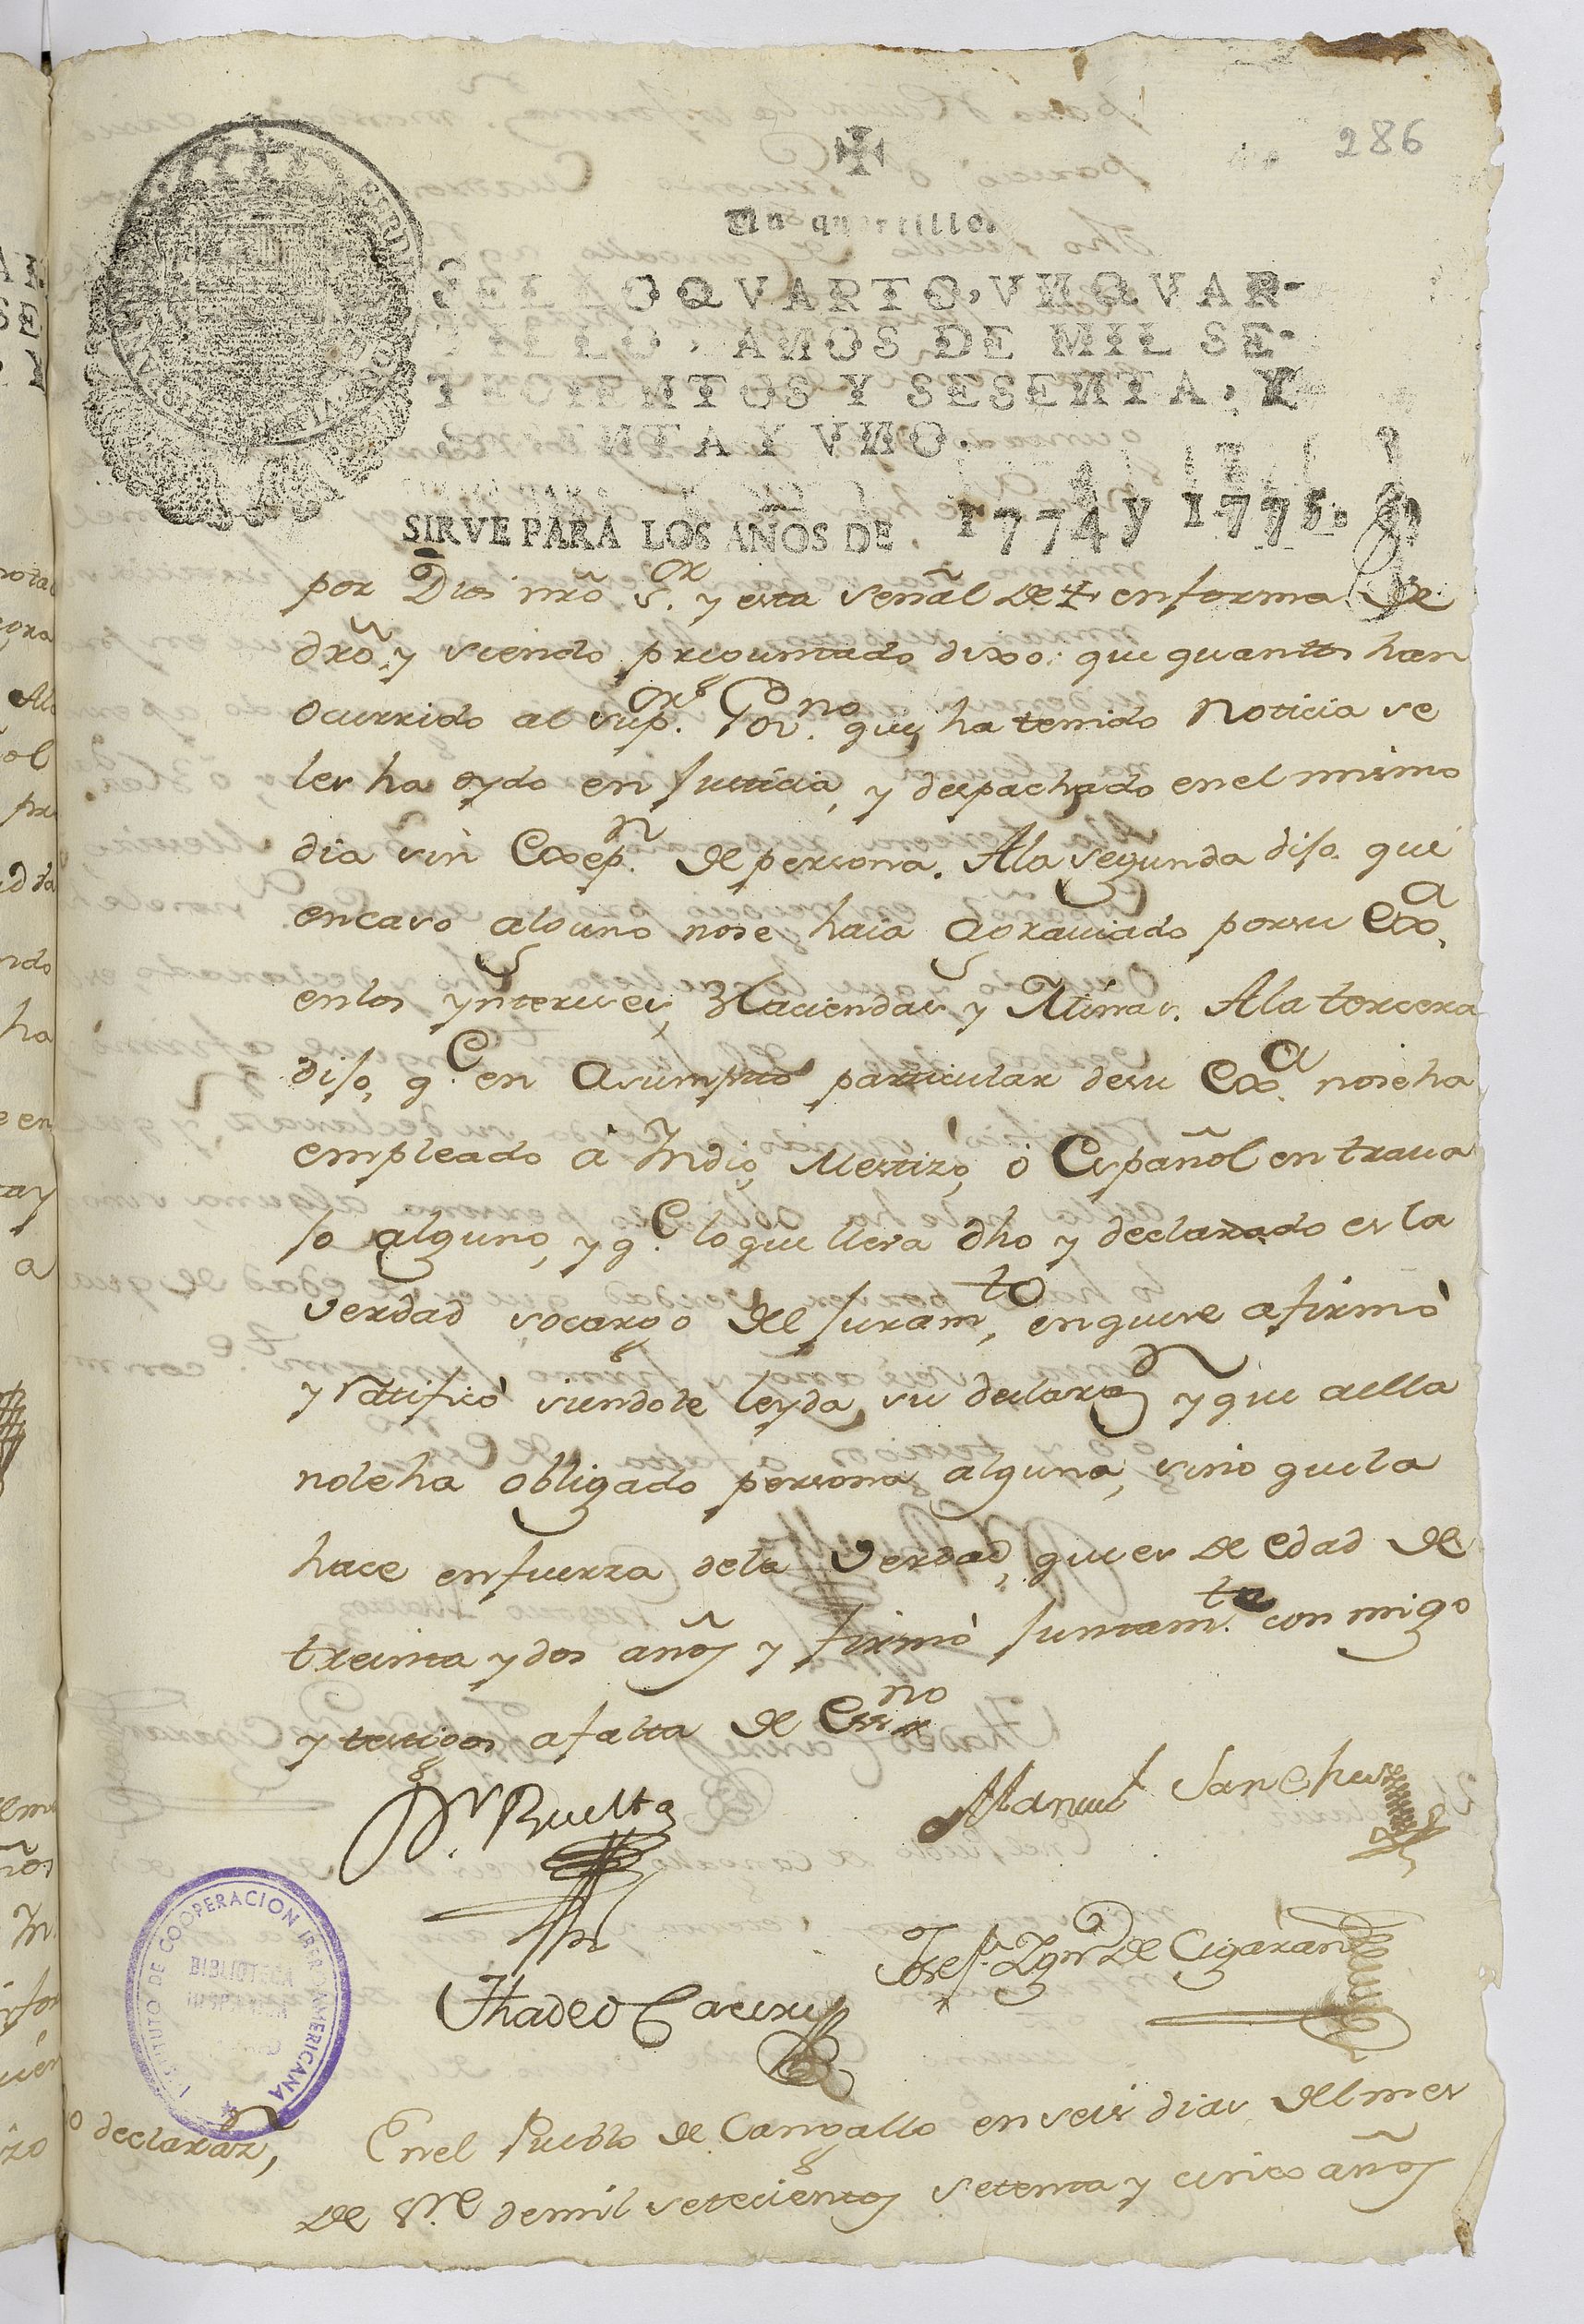 286
Un quartillo.
SELLO QVARTO, VN QVAR-
TILLO, AÑOS DE MIL SE-
TECIENTOS Y SESENTA, Y
SESENTA Y VNO.
SIRVE PARA LOS AÑOS DE 1774 y 1775.
por Dios nrõ S.or y esta señal de + en forma de
drõ. y siendo preguntado dixo: que quantos han
ocurrido al sup.or Gov.no que ha tenido noticia se
les ha oydo en Justicia, y despachado en el mismo
dia sin Exep.n de persona. Ala segunda dijo que
encaso alguno nose haia agraviado porsu Ex.a
enlos yntereses, Haciendas y Minas. Ala tercera
dijo, q.e en asumpto particular desu Ex.a nose ha
empleado à Indio, Mestizo, ò Español en trava
jo alguno, y q.e loque lleva dho y declarado es la
verdad socargo del Juram.to en quese afirmò
y ratificò siendole leyda su declaraz.n y que aella
nole ha obligado persona alguna, sino quela
hace enfuerza dela Verdad, que es de edad de
treinta y dos años y firmò Juntam.te con migo
y testigos afalta de Ess.no
D.r Ruelta
Manuel Sanches
Josef Ign.o de Cigaran
Thadeo Caceres
INSTITUTO DE COOPERACION IBEROAMERICANA
BIBLIOTECA
HISPANICA
declaraz.n
Enel Pueblo de Cangallo en seis dias del mes
de 8.re demil setecientos setenta y cinco años